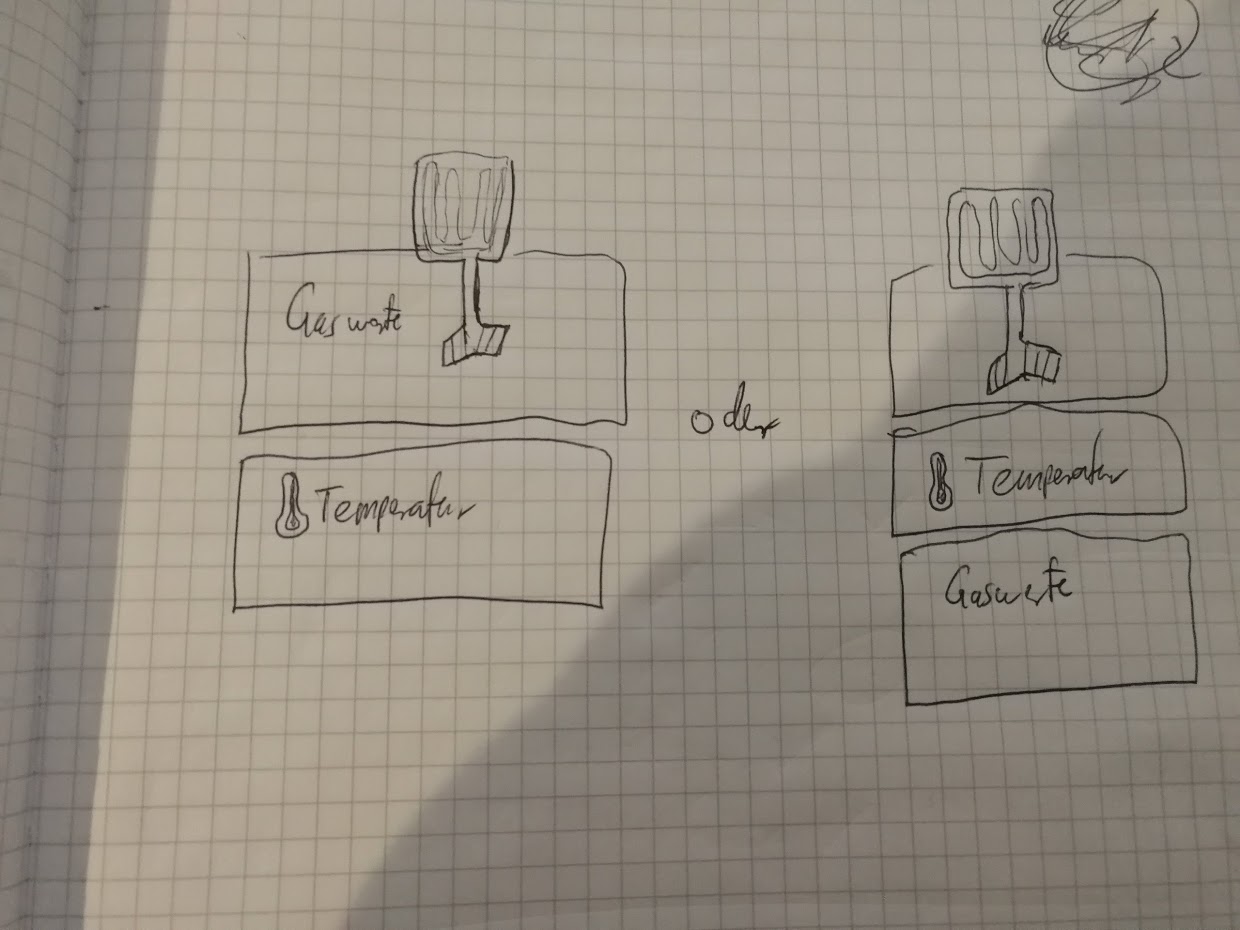 Gaswerte
Temperatur
oder
Temperatur
Gaswerte